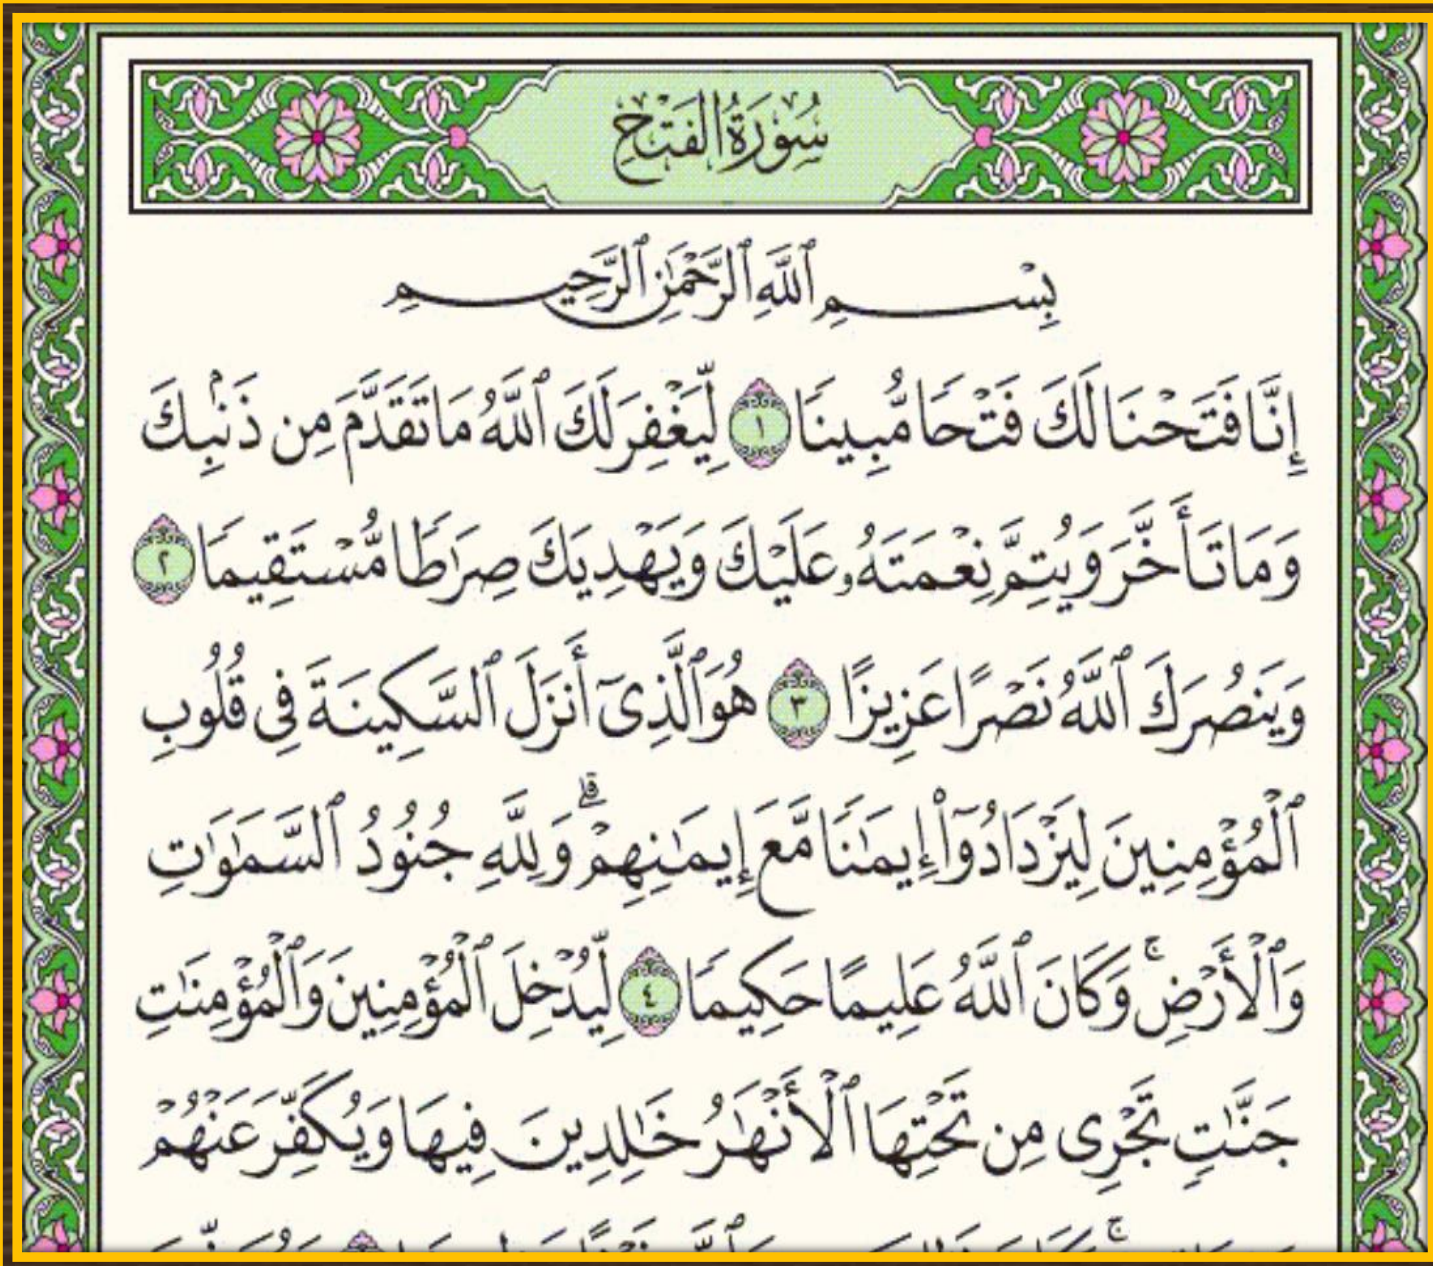 سُورَةُ الفَتْحِ
بِسْمِ ٱللَّهِ ٱلرَّحْمَٰنِ ٱلرَّحِيمِ
إِنَّا فَتَحْنَا لَكَ فَتْحًا مُّبِينًا ١ لِّيَغْفِرَ لَكَ ٱللَّهُ مَا تَقَدَّمَ مِن ذَنۢبِكَ
وَمَا تَأَخَّرَ وَيُتِمَّ نِعْمَتَهُۥ عَلَيْكَ وَيَهْدِيَكَ صِرَٰطًا مُّسْتَقِيمًا ٢
وَيَنصُرَكَ ٱللَّهُ نَصْرًا عَزِيزًا ٣ هُوَ ٱلَّذِىٓ أَنزَلَ ٱلسَّكِينَةَ فِى قُلُوبِ
ٱلْمُؤْمِنِينَ لِيَزْدَادُوٓا۟ إِيمَٰنًا مَّعَ إِيمَٰنِهِمْ ۗ وَلِلَّهِ جُنُودُ ٱلسَّمَٰوَٰتِ
وَٱلْأَرْضِ ۚ وَكَانَ ٱللَّهُ عَلِيمًا حَكِيمًا ٤ لِّيُدْخِلَ ٱلْمُؤْمِنِينَ وَٱلْمُؤْمِنَٰتِ
جَنَّٰتٍ تَجْرِى مِن تَحْتِهَا ٱلْأَنْهَٰرُ خَٰلِدِينَ فِيهَا وَيُكَفِّرَ عَنْهُمْ